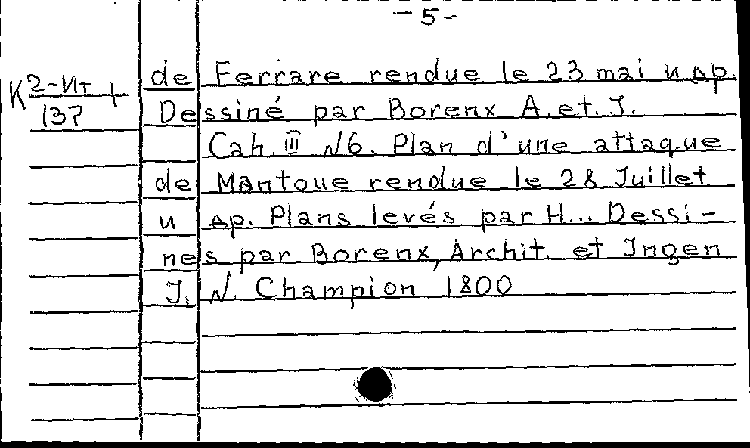 - 5 -
de Ferrare rendue le 23 mai и др.
K 2-Ит / 137 +
Dessiné par Borenx A. et. J.
Cah. III N6. Plan d'une attaque
de Mantoue rendue le 28 Juillet
и др. Plans levés par H... Dessi-
nes par Borenx, Archit. et Ingen
J. N. Champion 1800